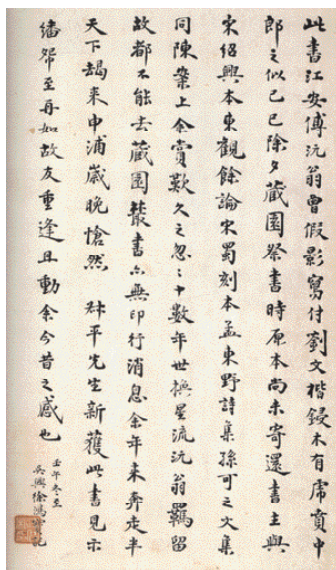 此書江安傅沅翁曾假影寫付劉文楷鋟木有虎賁中
郎之似己巳除夕藏園祭書時原本尚未寄還書主與
宋紹興本東觀餘論宋蜀刻本孟東野詩集孫可之文集
同陳案上余賞歎久之忽忽十數年世換星流沅翁羈留
故都不能去藏園叢書亦無印行消息余年來奔走半
天下朅來申浦歲晚愴然 尌平先生新獲此書見示
繙帋至再如故友重逢且動余今昔之感也
壬午冬至
吳興徐鴻寶記